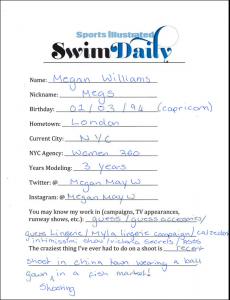 Sports Illustrated
Swim Daily
Name: Megan Williams
Nickname: Megs
Birthday: 02/03/94 (capricorn)
Hometown: London
Current City: NYC
NYC Agency: Women 360
Years Modeling: 3 years
Twitter: @ MeganMayW
Instagram: @ MeganMayW
You may know my work in (campaigns, TV appearances,
runway shows, etc.) guess / guess accessories /
guess Lingerie / Myla lingerie campaign / calzedonia
intimissimi show / victoria secrets / ASOS
The craziest thing I've ever had to do on a shoot is recent
shoot in china town wearing a ball
gown in a fish market!
Shooting